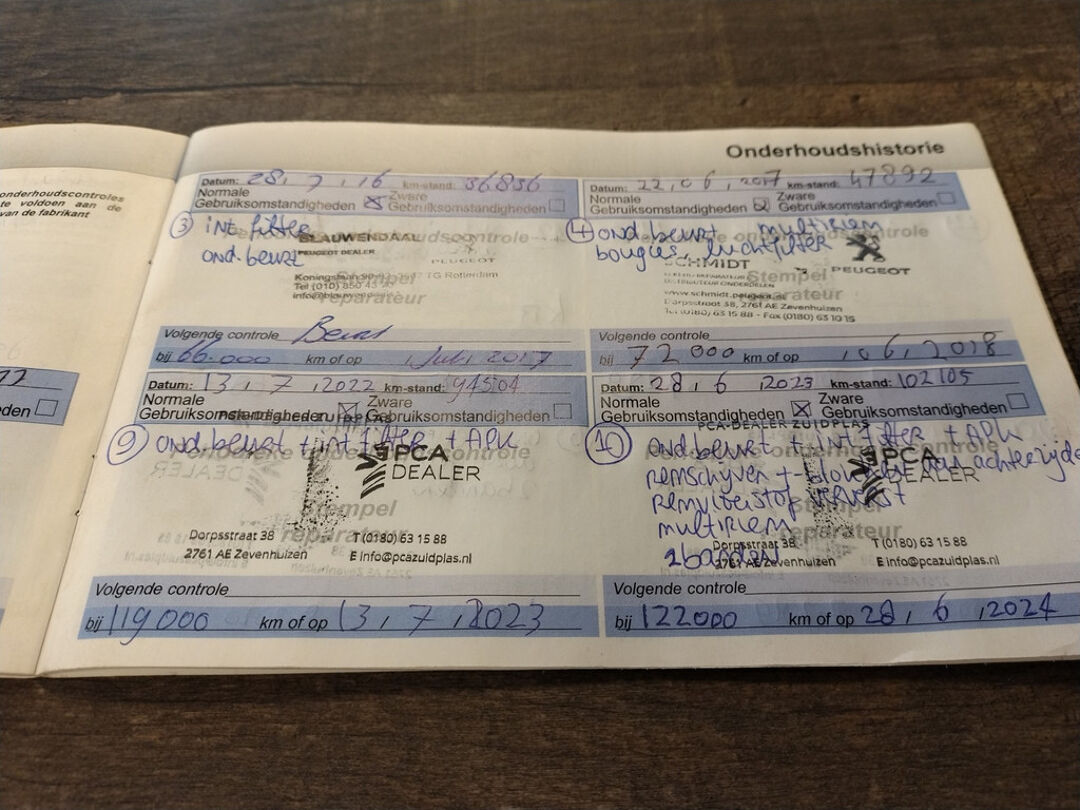 onderhoudscontroles
te voldoen aan de
van de fabrikant
Onderhoudshistorie
Datum: 28, 7, 16 km-stand: 36836
Normale
Gebruiksomstandigheden
Zware
Gebruiksomstandigheden
3 int filter
ond. beurt
BLAUWENDAAL
PEUGEOT DEALER
PEUGEOT
TG Rotterdam
Tel (010) 850
Stempel
reparateur
Volgende controle Beurt
bij 66.000 km of op , Juli, 2017
Datum: 22, 06, 2017 km-stand: 47892
Normale
Gebruiksomstandigheden
Zware
Gebruiksomstandigheden
4 ond beurt multiriem
bougies, luchtfilter
SCHMIDT
PEUGEOT
Stempel
reparateur
www.schmidt.peugeot.nl
Dorpsstraat 38, 2761 AE Zevenhuizen
Tel. (0180) 63 15 88 - Fax (0180) 63 10 15
Volgende controle
bij 72000 km of op , 06, 2018
77
den
Datum: 13, 7, 2022 km-stand: 94504
Normale
Gebruiksomstandigheden
Zware
Gebruiksomstandigheden
9 ond beurt + int filter + APK
PCA
DEALER
Stempel
reparateur
Dorpsstraat 38
2761 AE Zevenhuizen
T (0180) 63 15 88
E info@pcazuidplas.nl
Volgende controle
bij 119000 km of op 13, 7, 2023
Datum: 28, 6, 2023 km-stand: 102105
Normale
Gebruiksomstandigheden
Zware
Gebruiksomstandigheden
PCA-DEALER ZUIDPLAS
10 ond beurt + int filter + APK
remschijven + blokken achterzijde
remvloeistof ververst
multiriem
2 banden
PCA
DEALER
Stempel
reparateur
Dorpsstraat 38
2761 AE Zevenhuizen
T (0180) 63 15 88
E info@pcazuidplas.nl
Volgende controle
bij 122000 km of op 28, 6, 2024